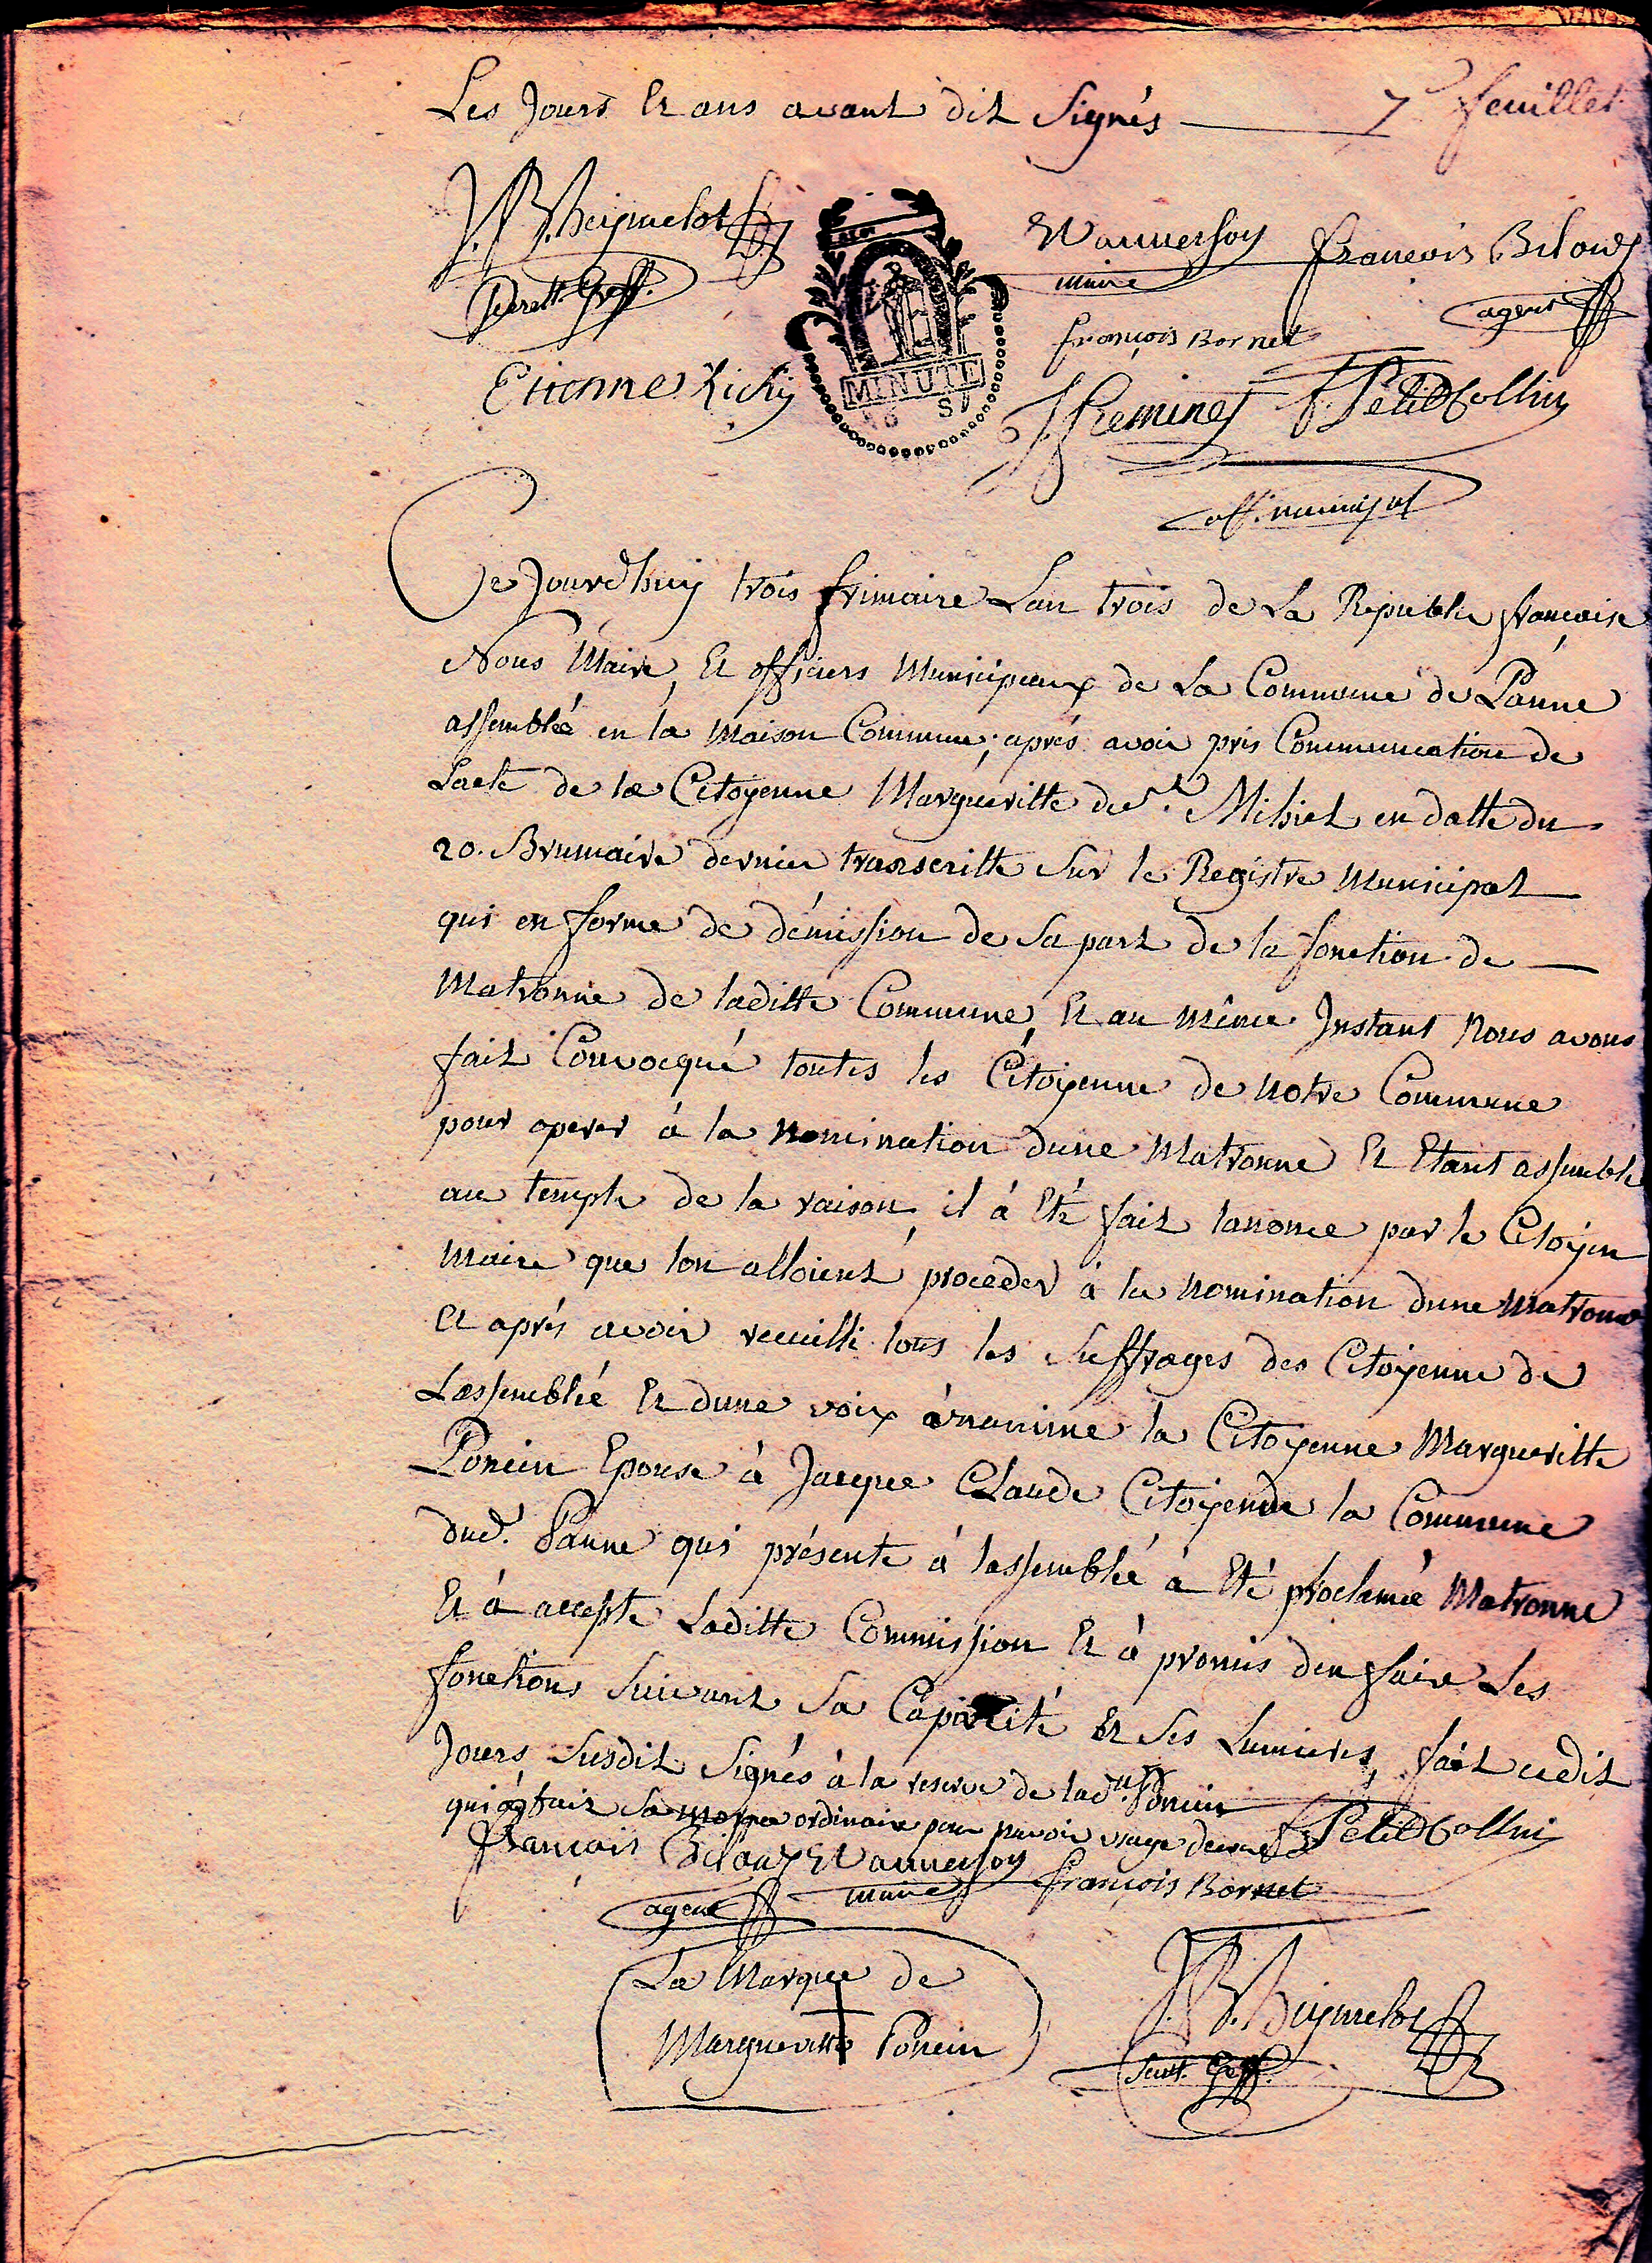 Les Jours Et ans avant dit Signés 7e feuillet
J. B. Huguelot
Secret. Greff.
Wannesson François Bilaux
maire
agent
François Bornet
Etienne Richy
MINUTE
6 S
J Heminet F. Petit Collin
off. municipal
Ce Jourdhuy trois frimaire Lan trois de La Republie françoise
Nous Maire, Et officiers Municipeaux de La Commune de Panne
assemblée en la maison Commune, aprés avoir pris Communication de
Lacte de la Citoyenne Margueritte de St. Mihiel en datte du
20. Brumaire dernier transcritte Sur le Registre Municipal
qui en forme de démission de Sa part de la fonction de
Matronne de laditte Commune, Et au même Instant Nous avons
fait Convocqué toutes les Citoyenne de notre Commune
pour operer à la nomination dune Matronne Et Etant assemble
au temple de la raison, il à Eté fait lanonce par le Citoyen
Maire que lon alloient proceder à la nomination dune matronne
Et aprés avoir recuilli tous les Suffrages des Citoyenne de
Lassemblée Et dune voix ànanime la Citoyenne Margueritte
Poncin Epouse à Jacque Claude Citoyen de la Commune
dud. Panne qui présente à lassemblée à Eté proclamée Matronne
Et à accepte Laditte Commission Et à promis den faire Les
fonctions Suivant Sa Capacité Et Ses Lumieres, fait cedit
Jours Susdit Signés à la reserve de lad. Poncin
qui à fait Sa marque ordinaire pour navoir usage decrire F. Petit Collin
François Bilaux Wannesson François Bornet
agent maire
La Marque de
Margueritte Poncin
J. B. Huguelot
Secret. Greff.